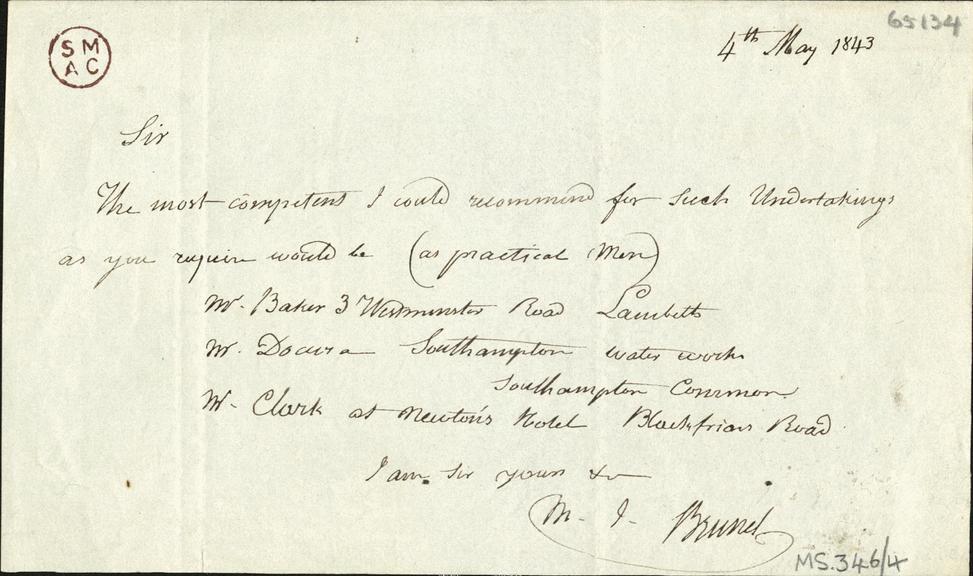 65134
SM
AC
4th May 1843
Sir
The most competent I could recommend for such Undertakings
as you require would be (as practical Men)
Mr. Baker 3 Westminster Road Lambeth
Mr. Docwra Southampton water works
Southampton Common
Mr. Clark at Newton's Hotel Blackfriars Road
I am Sir yours &c
M. I. Brunel
MS.346/4